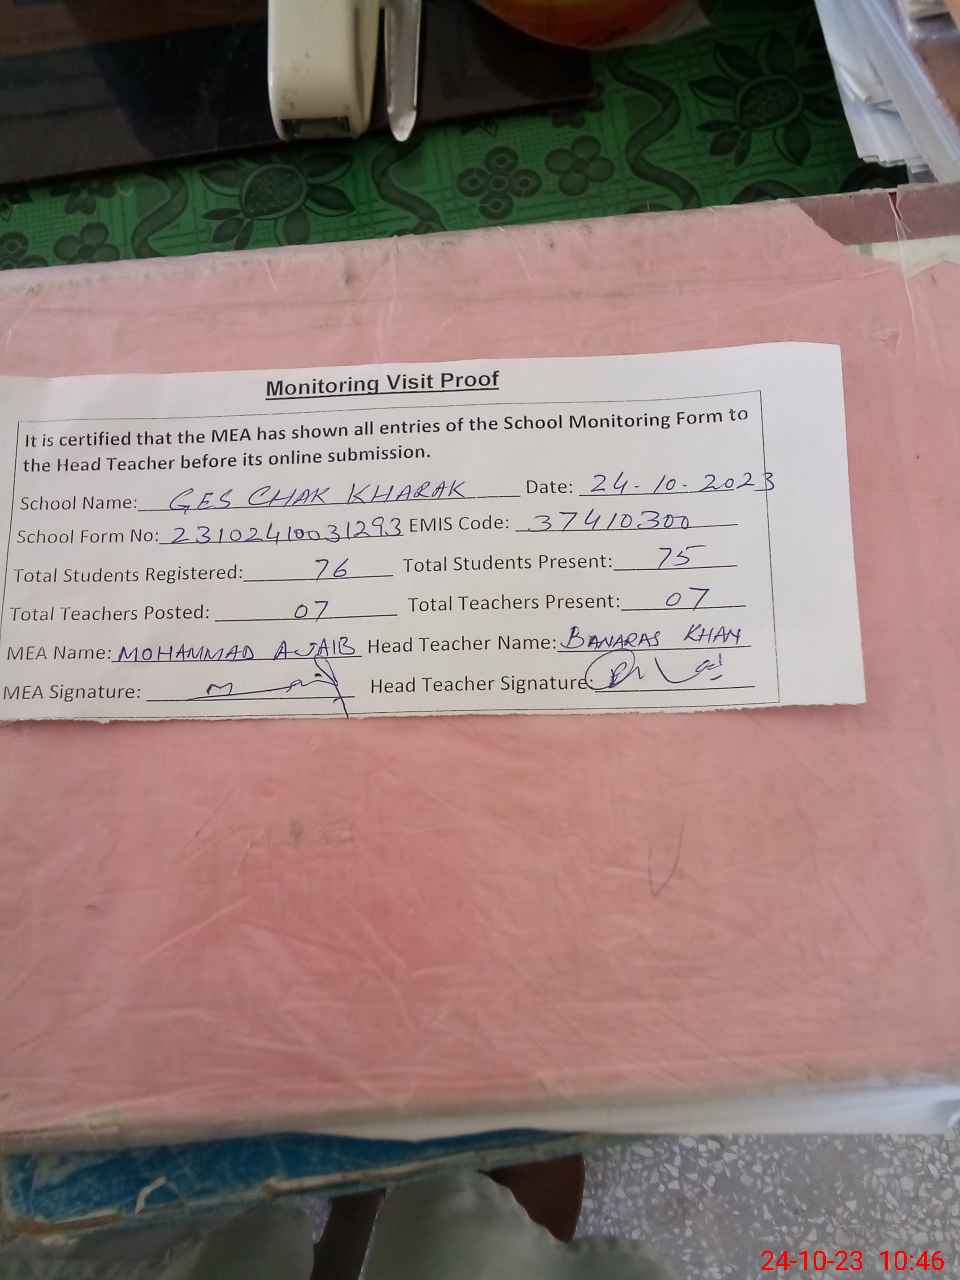 Monitoring Visit Proof
It is certified that the MEA has shown all entries of the School Monitoring Form to
the Head Teacher before its online submission.
School Name: GES CHAK KHARAK Date: 24-10-2023
School Form No: 23102410031293 EMIS Code: 37410300
Total Students Registered: 76 Total Students Present: 75
Total Teachers Posted: 07 Total Teachers Present: 07
MEA Name: MOHAMMAD AJAIB Head Teacher Name: BANARAS KHAN
MEA Signature: Head Teacher Signature:
24-10-23 10:46